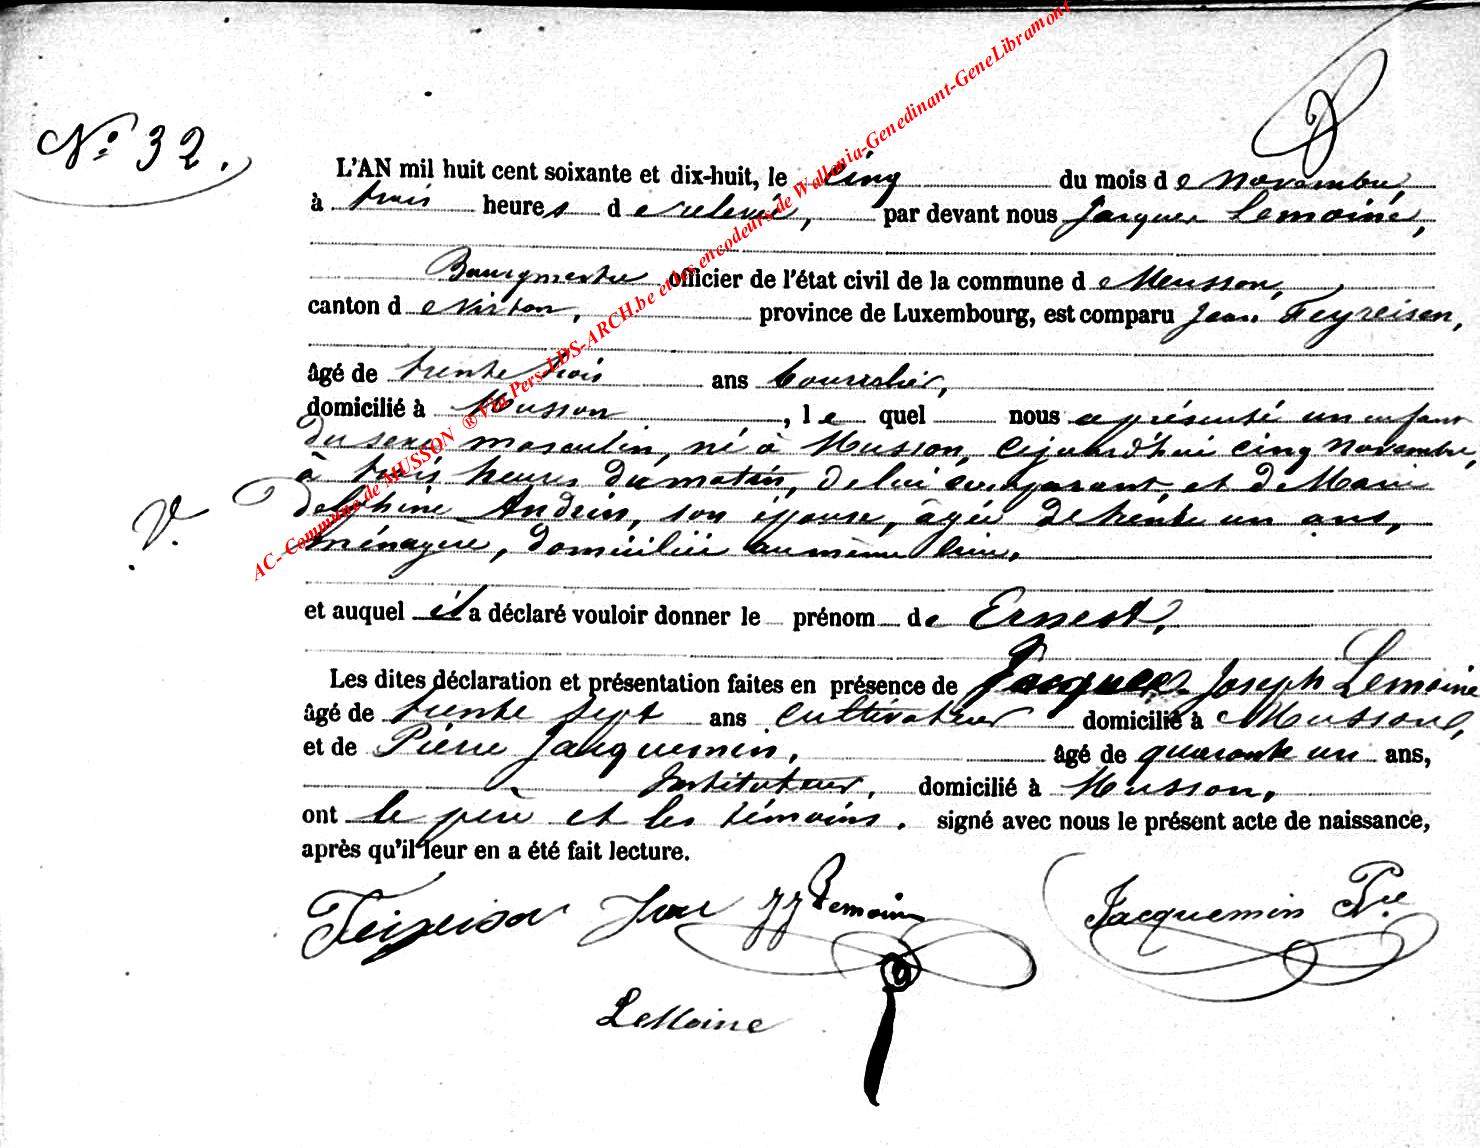 N° 32.
L'AN mil huit cent soixante et dix-huit, le cinq du mois de novembre,
à trois heures de relevée, par devant nous Jacques Lemoine,
Bourgmestre officier de l'état civil de la commune de Musson,
canton de Virton, province de Luxembourg, est comparu Jean Feyreisen,
âgé de trente trois ans bourrelier,
domicilié à Musson, lequel nous a présenté un enfant
du sexe masculin, né à Musson, cejourd'hui cinq novembre,
à trois heures du matin, de lui comparant, et de Marie
Delphine Andrin, son épouse, âgée de trente un ans,
ménagère, domiciliée au même lieu.
V.
et auquel il a déclaré vouloir donner le prénom de Ernest.
Les dites déclaration et présentation faites en présence de Jacques Joseph Lemoine
âgé de trente sept ans cultivateur domicilié à Musson,
et de Pierre Jacquemin, âgé de quarante un ans,
Instituteur, domicilié à Musson,
ont le père et les témoins. signé avec nous le présent acte de naissance,
après qu'il leur en a été fait lecture.
JJ Lemoine Jacquemin Pre
LeMoine
AC- Commune de MUSSON ® Via Pers-LDS-ARCH.be et les encodeurs de Wallonia-Genedinant-GeneLibramont